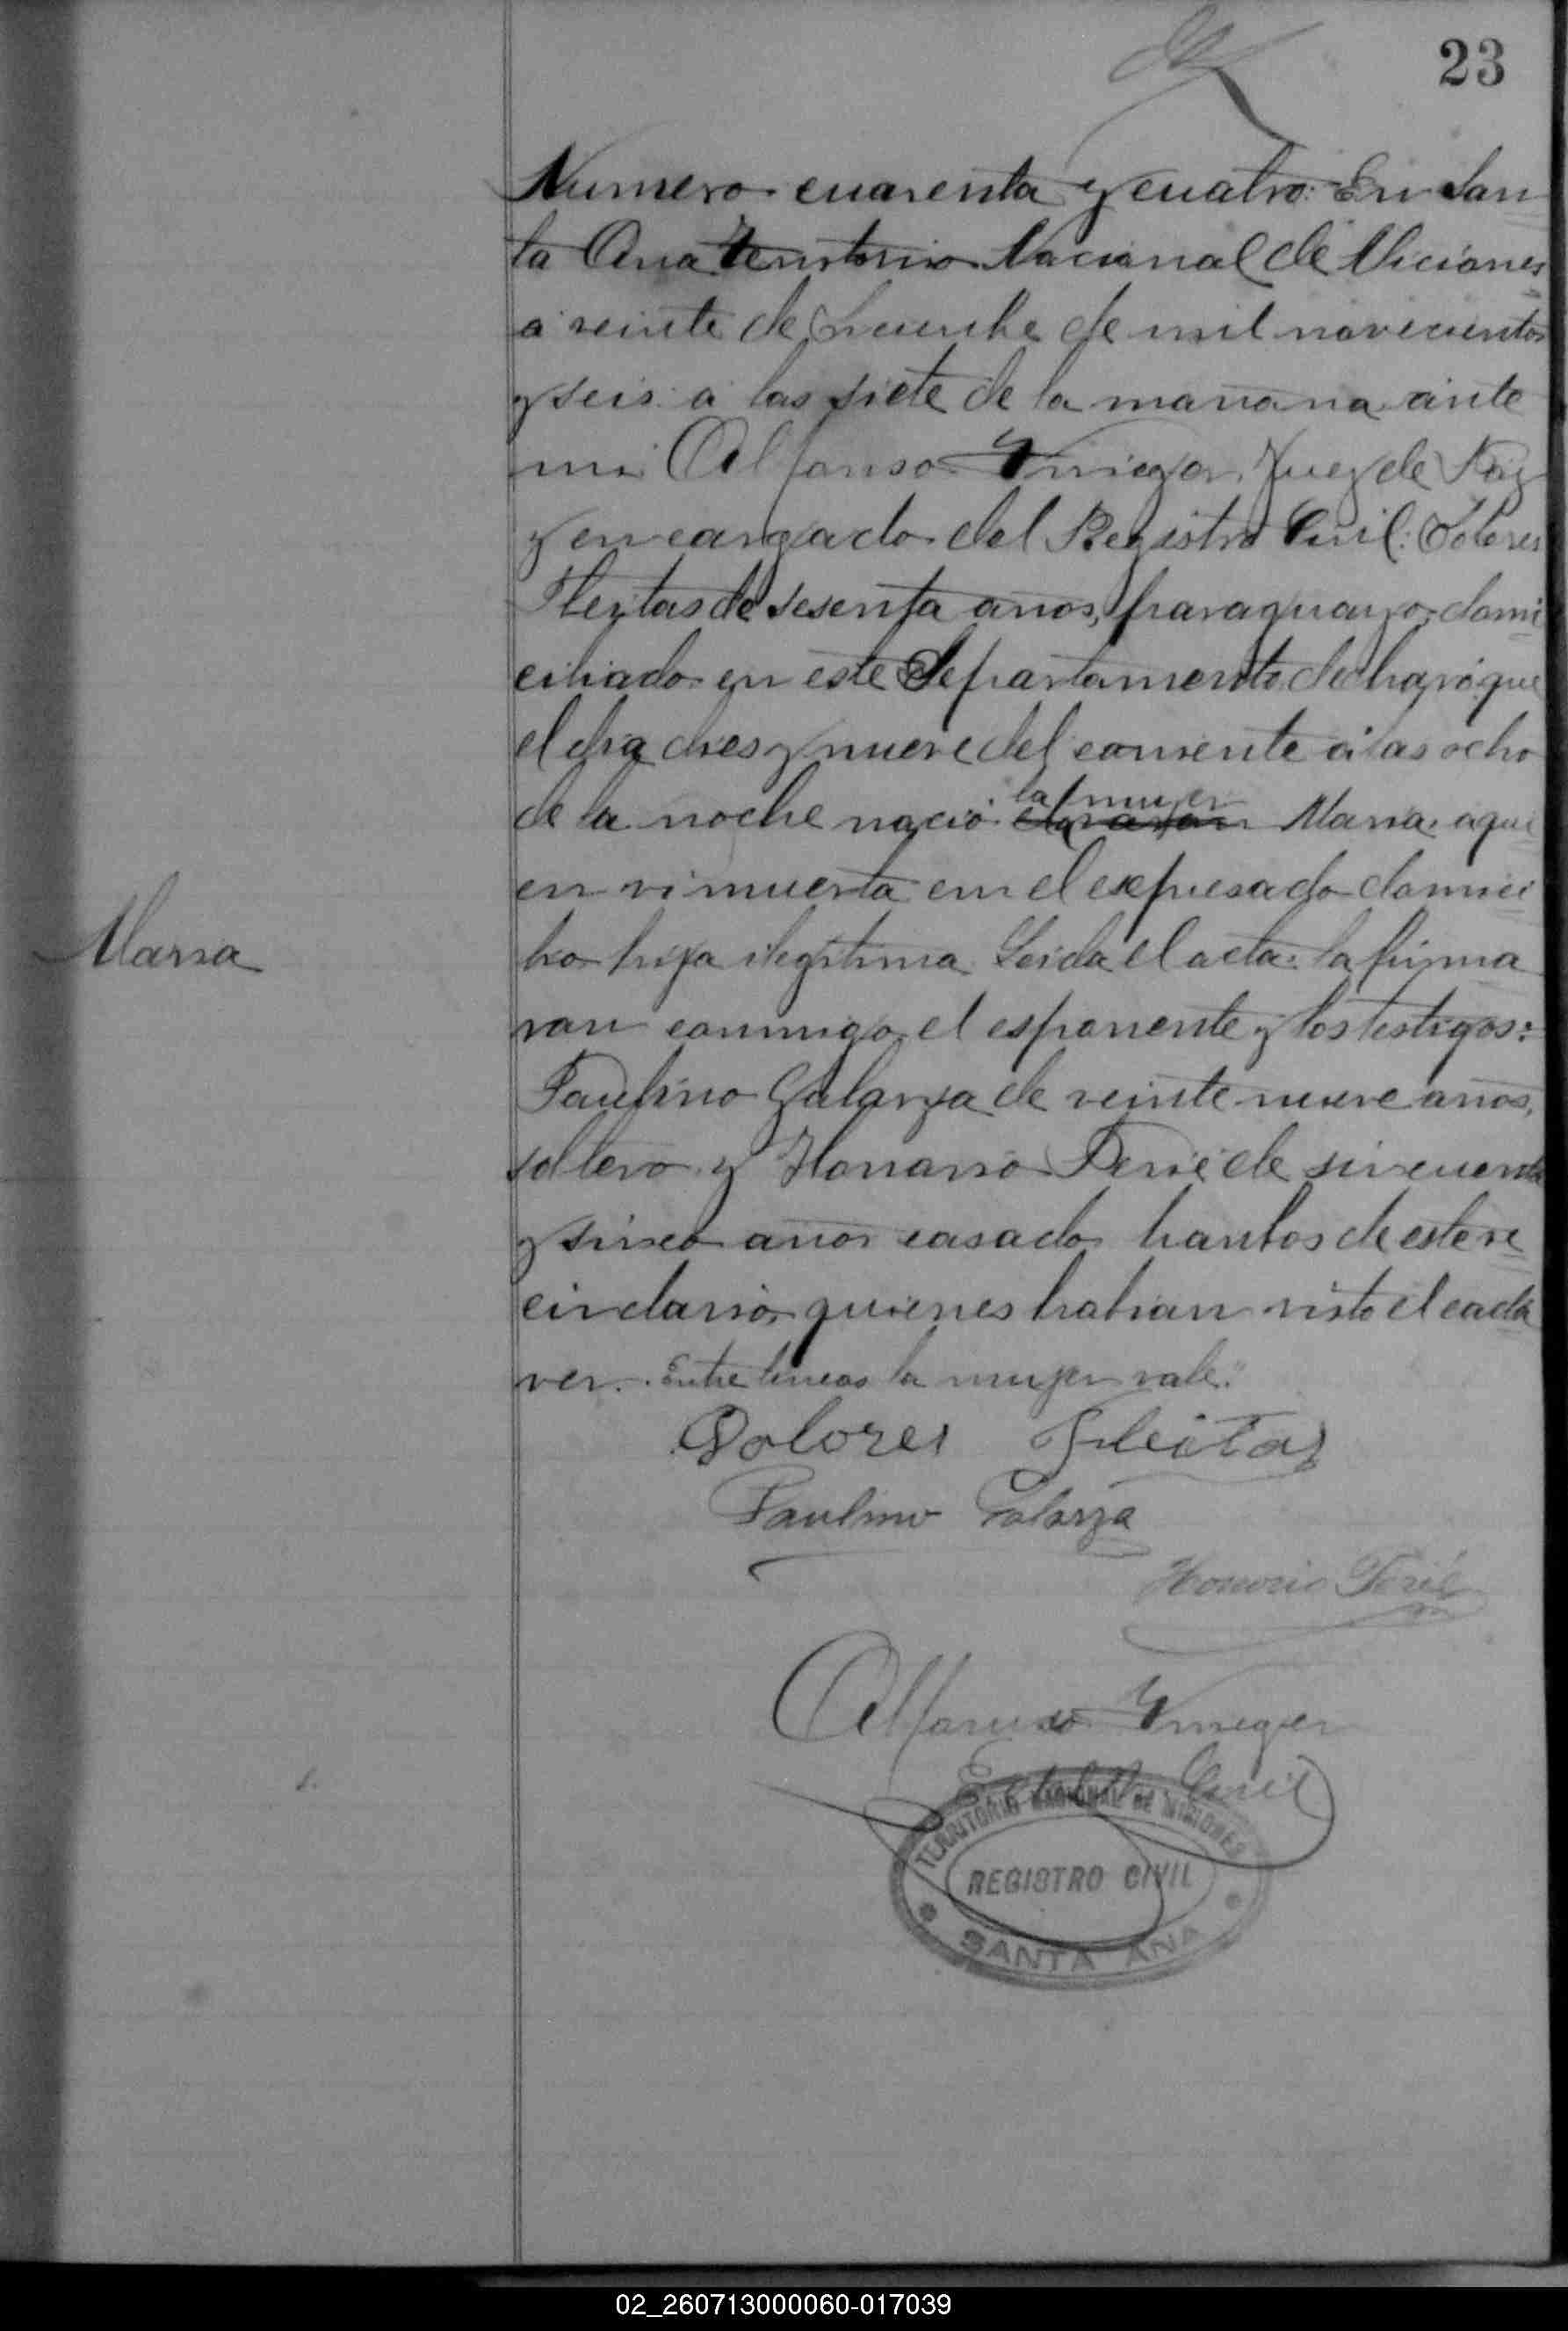 23
Numero cuarenta y cuatro: En San
ta Ana Territorio Nacional de Miciones
a veinte de de mil novecientos
y seis a las siete de la mañana ante
mi Alfonso Juez de Paz
y encargado del Registro Civil: Dolores
Fleytas de sesenta años, paraguayo, domi
ciliado en este Departamento declaró que
el dia dies y nueve del corriente a las ocho
de la noche nació la mujer Maria aqui
en vi muerta en el expresado domici
Maria
lio hija ilegitima Leida el acta la firma
ron conmigo el esponente y los testigos:
Paulino Galarza de veinte nueve años,
soltero y Honorio de sincuenta
y sinco años casado hambos de este ve
cindario, quienes habian visto el cada
ver. Entre lineas la mujer vale.
Dolores Fleitas
Paulino Galarza
Honorio
Alfonso
Civil
TERRITORIO NACIONAL DE MISIONES
REGISTRO CIVIL
SANTA ANA
02_260713000060-017039